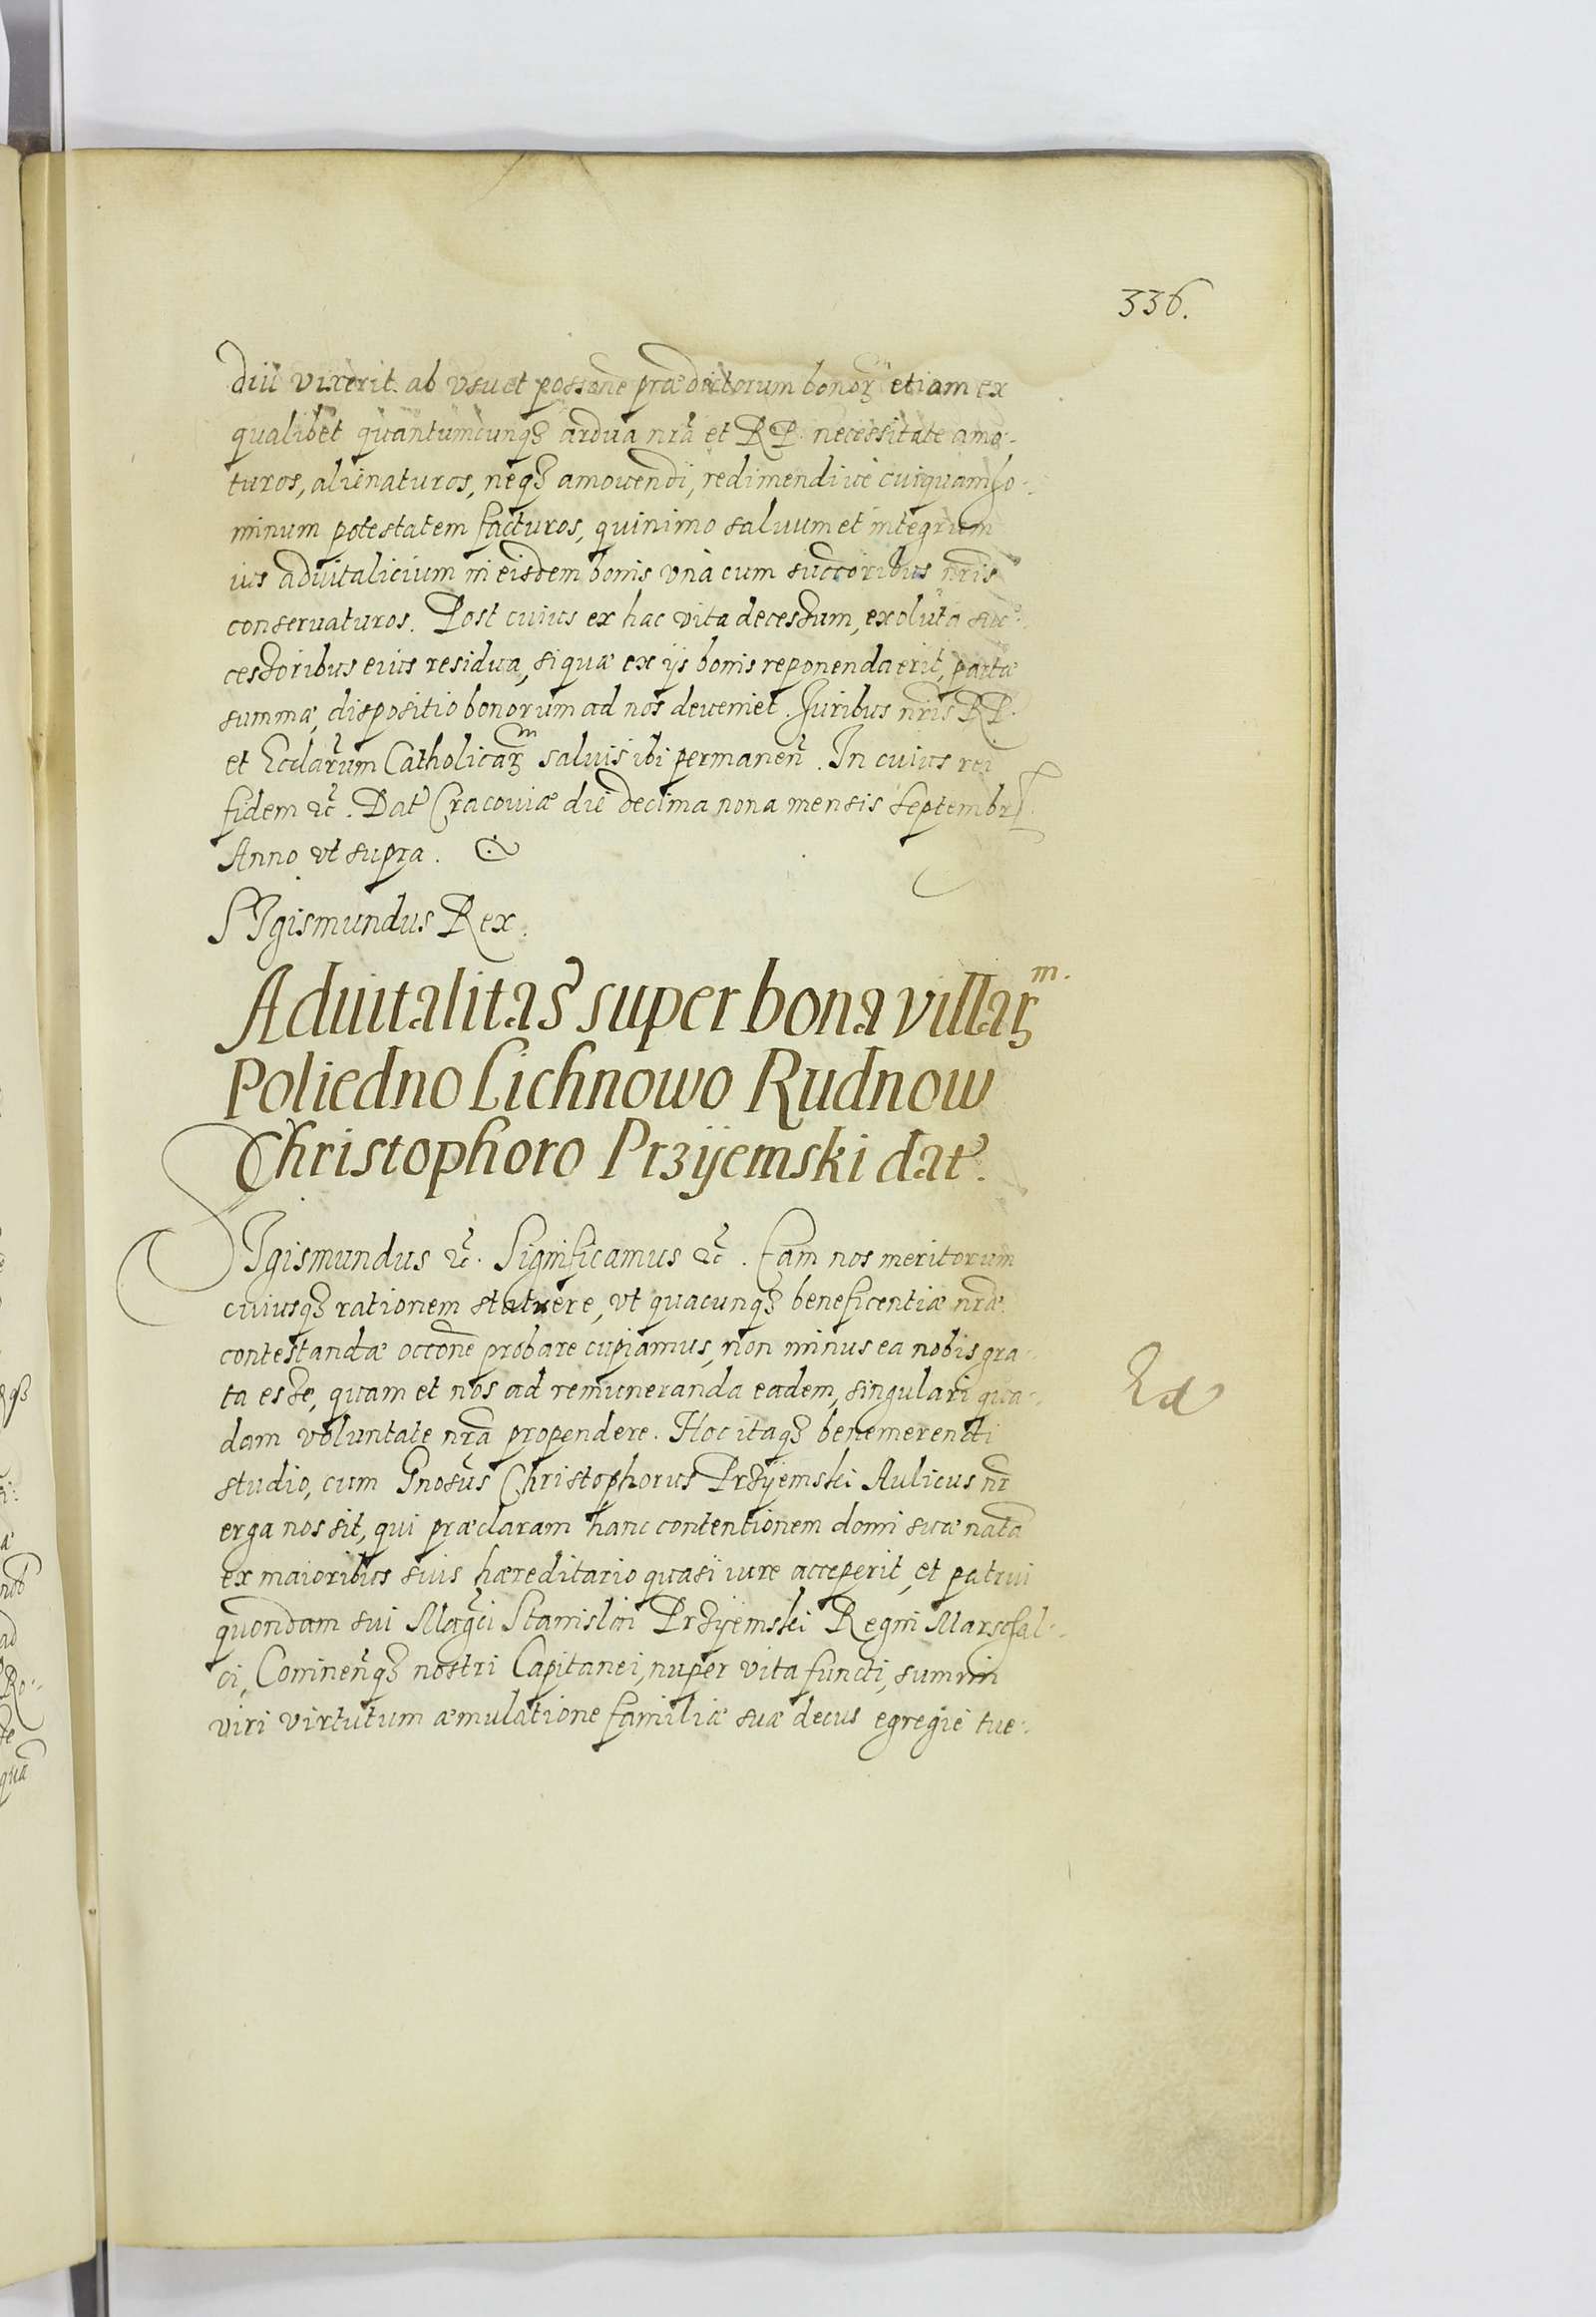 336.
diu vixerit. ab vsu et possone prædictorum bonorꝫ etiam ex
qualibet quantumcunqꝫ ardua nrā et RP. necessitate amo-
turos, alienaturos, neqꝫ amouendi, redimendiue cuiquam ho-
minum potestatem facturos, quinimo saluum et integrum
ius aduitalicium in eisdem bonis vnà cum succoribus nris
conseruaturos. Post cuius ex hac vita decessum, exoluta suc-
cessoribus eius residua, si quæ ex ijs bonis reponenda erit, parte
summæ, dispositio bonorum ad nos deueniet. Juribus nris RP.
et Ecclarum Catholicarꝫm saluis ibi permanen. In cuius rei
fidem etc. Dat Cracouiæ die decima nona mensis Septembr.
Anno vt supra.
SIgismundus Rex.
Aduitalitas super bona villarꝫm.
Poliedno Lichnowo Rudnow
Christophoro Przÿemski dat.
SIgismundus etc. Significamus etc. Eam nos meritorum
cuiusqꝫ rationem statuere, vt quacunqꝫ beneficentiæ nræ
contestandæ occone probare cupiamus, non minus ea nobis gra-
ta esse, quam et nos ad remuneranda eadem, singulari qua-
dam voluntate nrā propendere. Hoc itaqꝫ benemerendi
studio, cum Gnosus Christophorus Przÿemski Aulicus nr
erga nos sit, qui præclaram hanc contentionem domi suæ nata
ex maioribus suis hæreditario quasi iure acceperit, et patrui
quondam sui Magci Stanislai Przÿemski Regni Marschal-
ci, Coninenqꝫ nostri Capitanei, nuper vita functi, summi
viri virtutum æmulatione familiæ suæ decus egregiè tue-